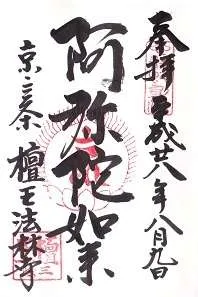 奉拝 平成廿八年八月九日
阿弥陀如来
京三条 檀王法林寺